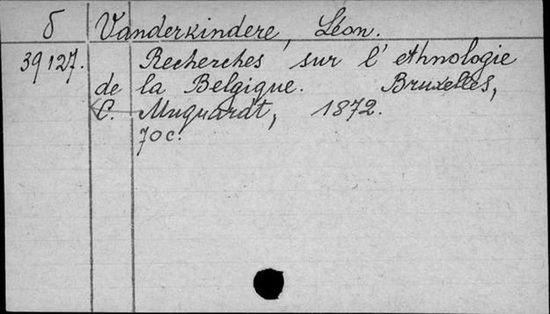 б Vanderkindere, Léon.
39127. Recherches sur l' ethnologie
de la Belgique. Bruxelles,
C. Muquardt, 1872.
70 c.